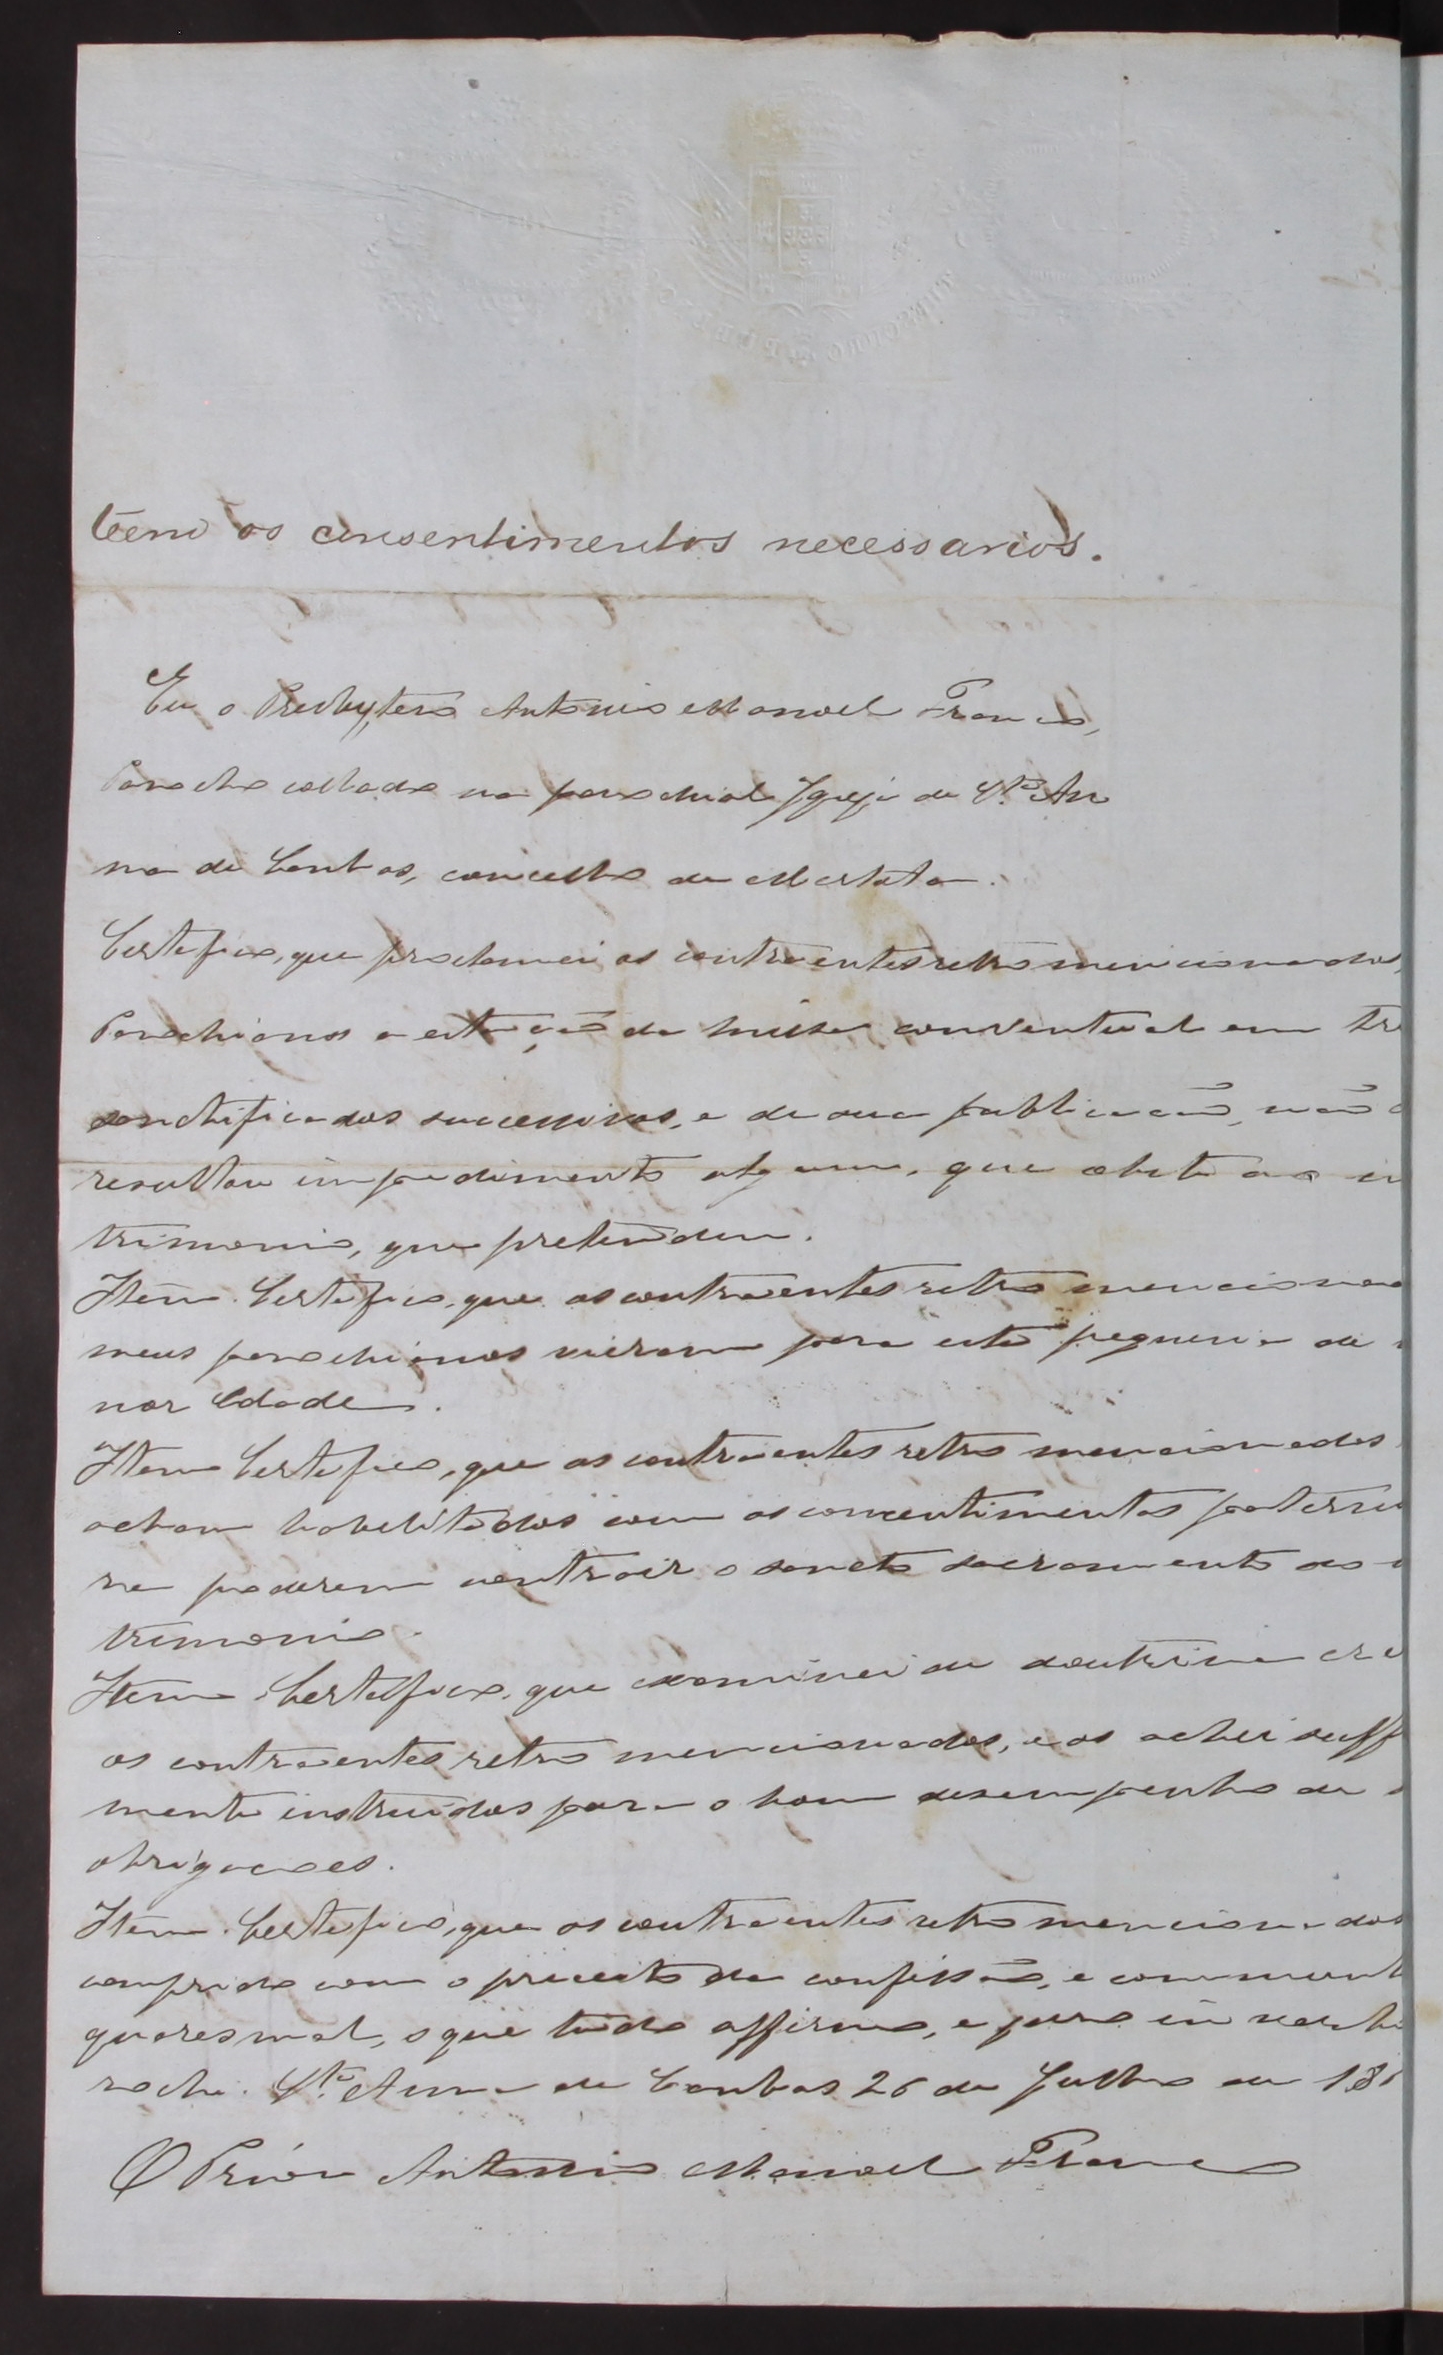 têem os consentimentos necessarios.
Eu o Presbytero Antonio Manoel Franco,
Parocho collado na parochial Igreja de Sta An
na de Cambas, concelho de Mertola.
Certefico, que proclamei os contraentes retro mencionados,
Parochianos a estação da missa conventual em tr
sanctificados successivos, e de sua publicação, não
resultou impedimento algum, que obste ao
trimonio, que pretendem.
Item Certefico, que os contraentes retro menciona
meus parochianos vieram para esta freguesia de
nor Edade.
Item Certefico, que os contraentes retro mencionados
acham habelitados com os consentimentos paterno
ra poderem contrair o sancto sacramento do
trimonio.
Item Certefico, que examinei de doutrina cr
os contraentes retro mencionados, e os achei suff
mente instruidos para o bom desempenho de
obrigacoes.
Item Certefico, que os contraentes retro mencionados
comprido com o preceito da confissão, e commun
quaresmal, o que tudo affirmo, e juro in verb
rochi. Sta Anna de Cambas 26 de Julho de 18
O Prior Antonio Manoel Franco